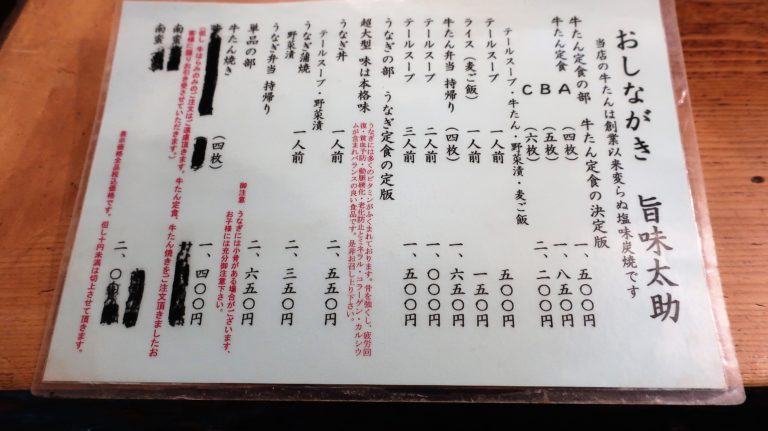 おしながき 旨味太助
当店の牛たんは創業以来変らぬ塩味炭焼です
牛たん定食の部 牛たん定食の決定版
牛たん定食 A (四枚) 一、五〇〇円
B (五枚) 一、八五〇円
C (六枚) 二、二〇〇円
テールスープ・牛たん・野菜漬・麦ご飯
テールスープ 一人前 五〇〇円
ライス(麦ご飯) 一人前 一五〇円
牛たん弁当 持帰り (四枚) 一、六五〇円
テールスープ 二人前 一、〇〇〇円
テールスープ 三人前 一、五〇〇円
うなぎの部 うなぎ定食の定版
超大型 味は本格味
うなぎには多くのビタミンがふくまれております。骨を強くし、疲労回
復・貧血予防・動脈硬化・老化防止とミネラル・コラーゲン・カルシウ
ムが含まれバランスの良い食品です。是非お召し上り下さい。
うなぎ丼 一人前 二、五五〇円
テールスープ・野菜漬
うなぎ蒲焼 一人前 二、三五〇円
野菜漬
うなぎ弁当 持帰り 一人前 二、六五〇円
御注意 うなぎには小骨がある場合がございます、
お子様には充分御注意下さい。
単品の部
牛たん焼き (四枚) 一、四〇〇円
(但し 牛はらみのみのご注文はご遠慮頂きます。牛たん定食、牛たん焼きをご注文頂きましたお
客様に限りお引き受させていただきます。)
南蛮
南蛮 二、〇 円
表示価格全品税込価格です。但し十円未満は切上させて頂きます。